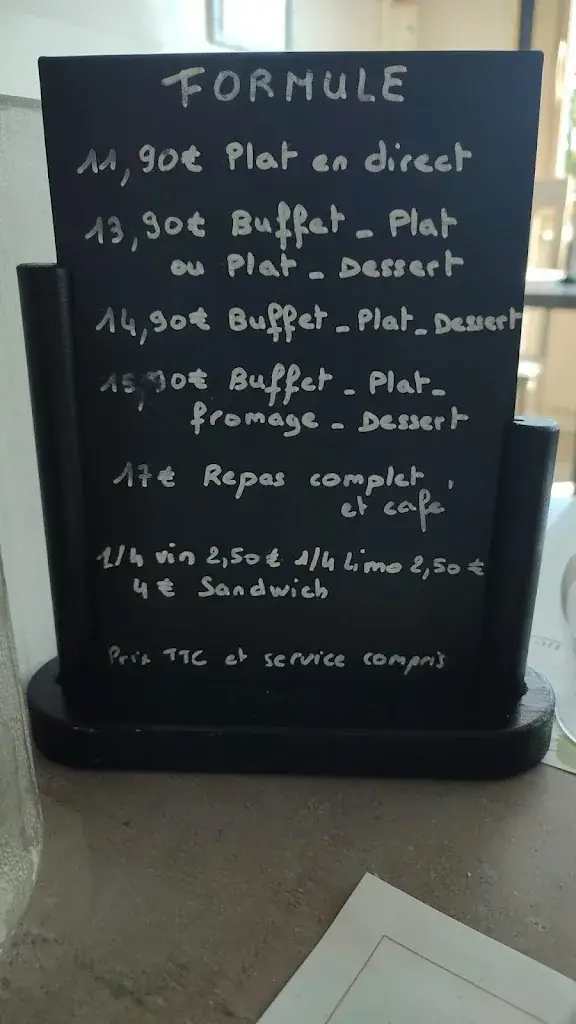 FORMULE
11,90€ Plat en direct
13,90€ Buffet - Plat
ou Plat - Dessert
14,90€ Buffet - Plat - Dessert
15,90€ Buffet - Plat -
fromage - Dessert
17€ Repas complet
et café
1/4 vin 2,50€ 1/4 Limo 2,50€
4€ Sandwich
Prix TTC et service compris